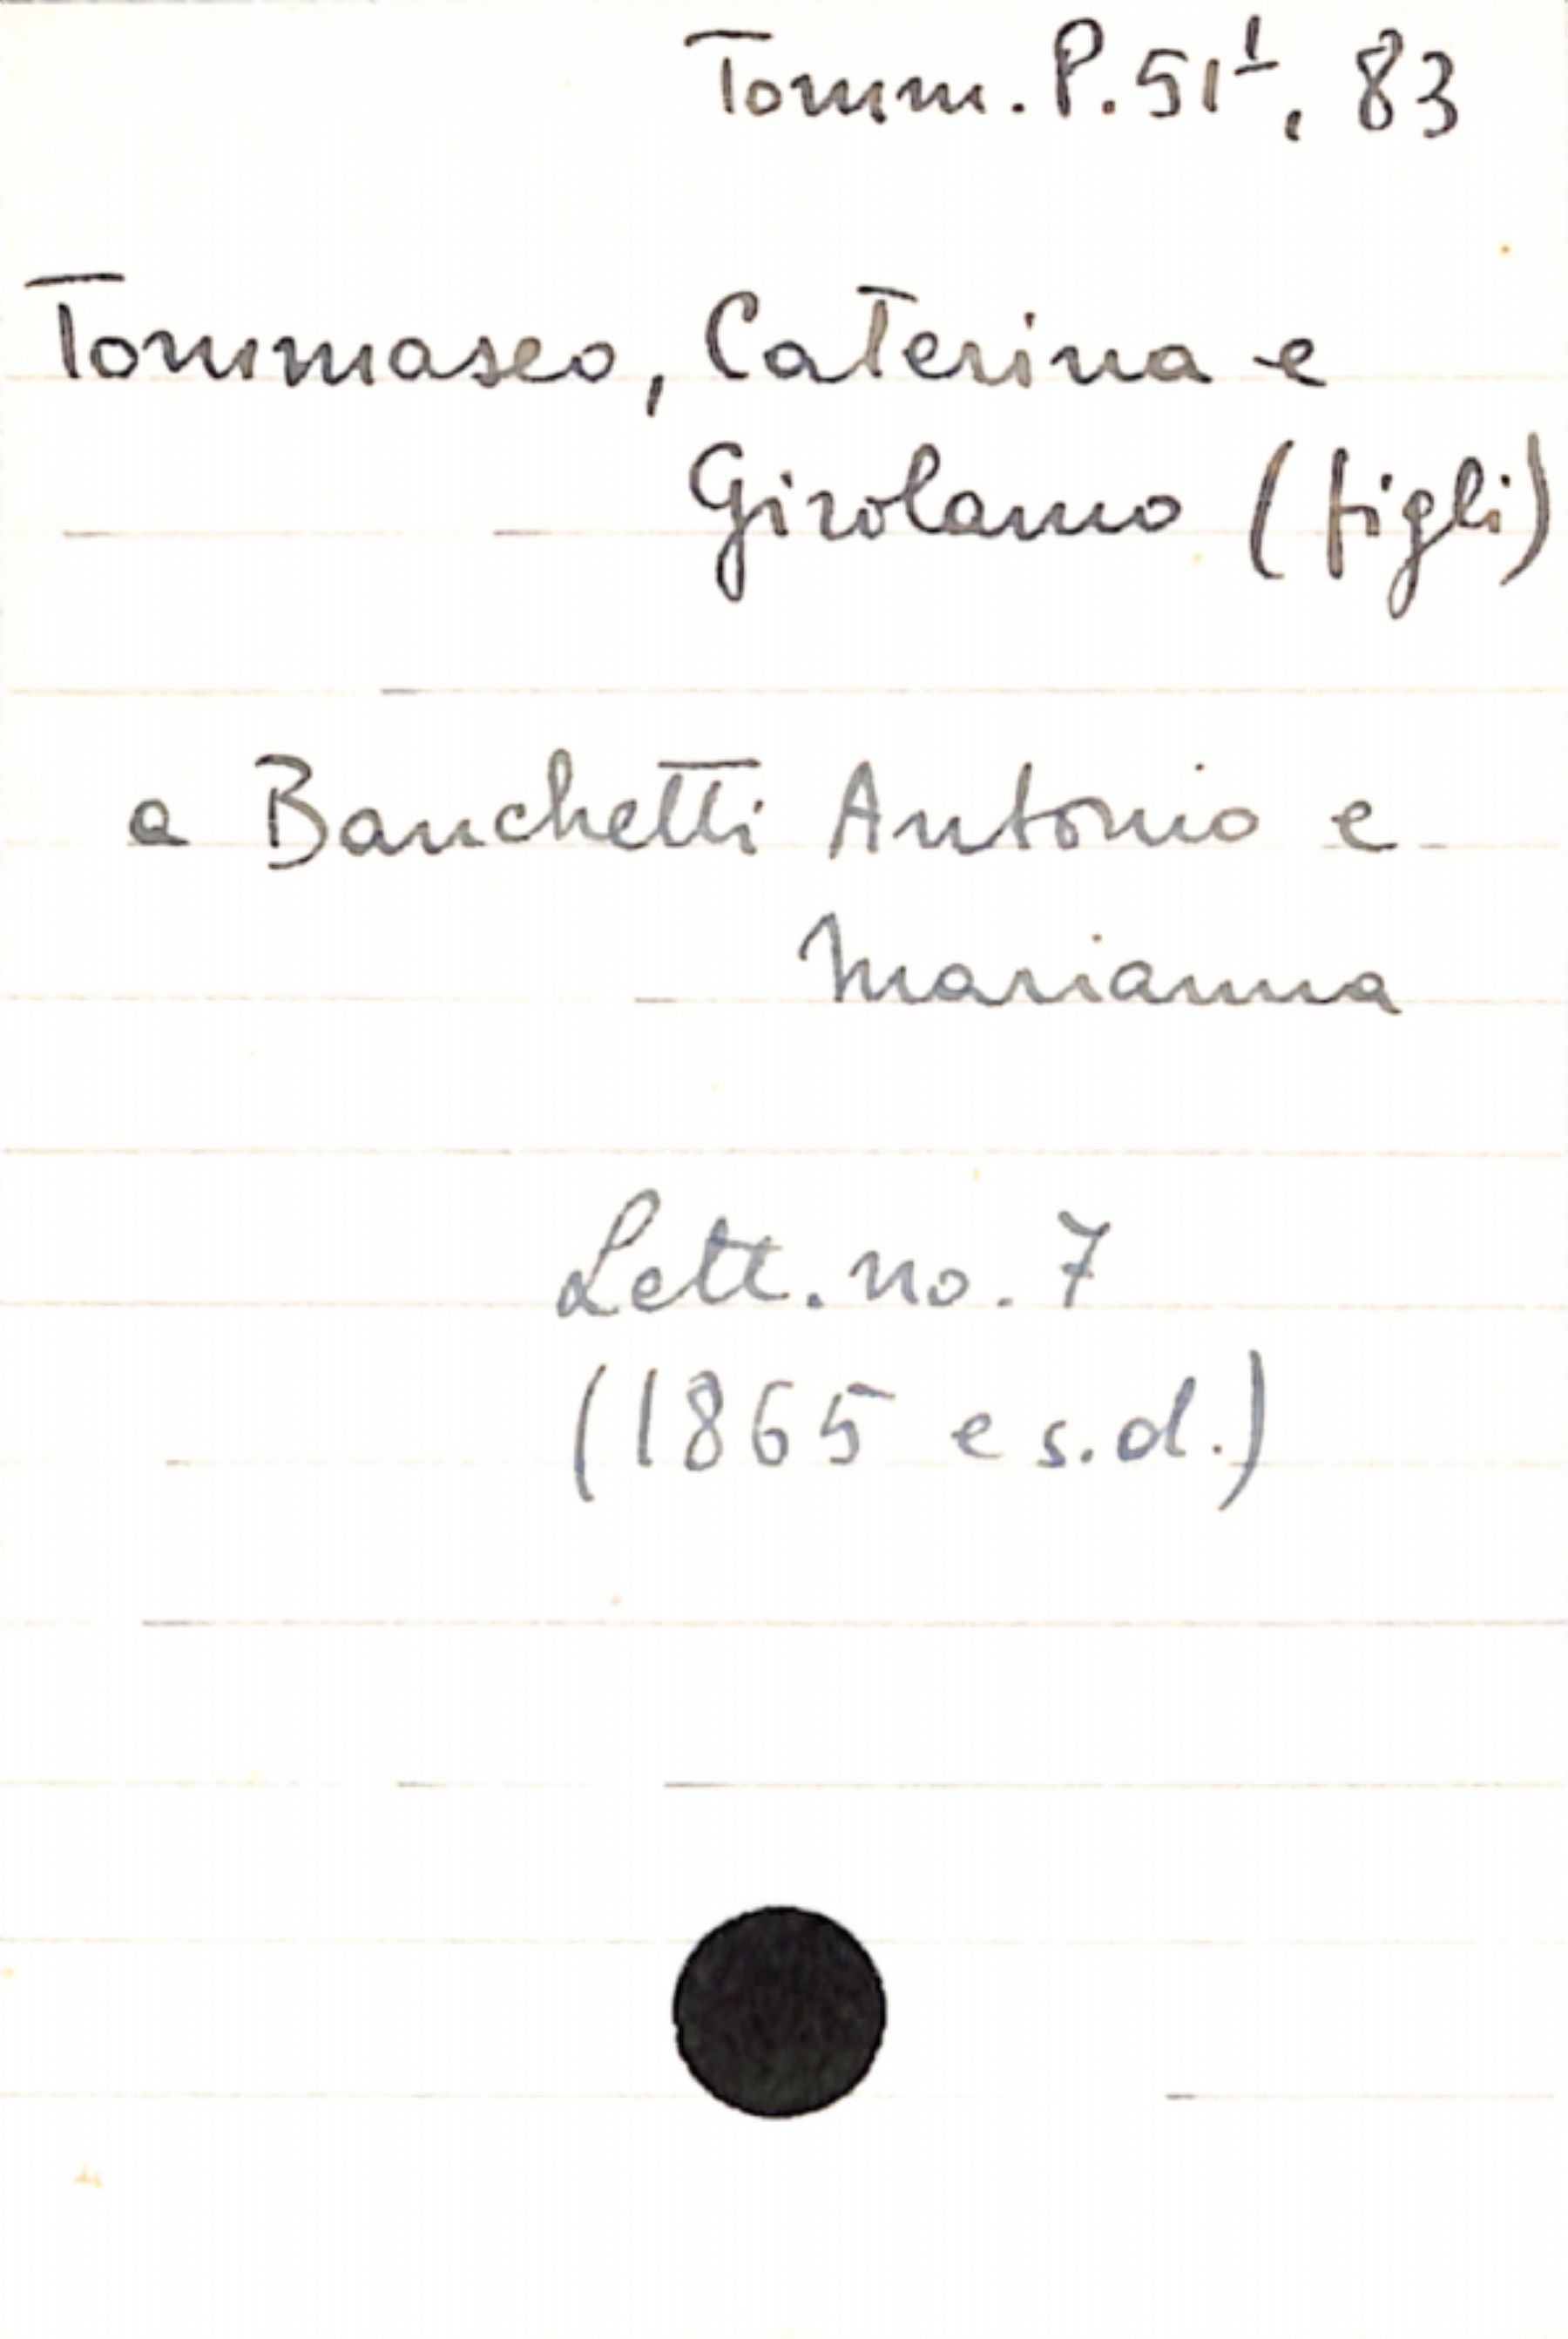 Tomm. P. 51¹, 83
Tommaseo, Caterina e
Girolamo (figli)
a Banchetti Antonio e
Marianna
Lett. no. 7
(1865 e s.d.)